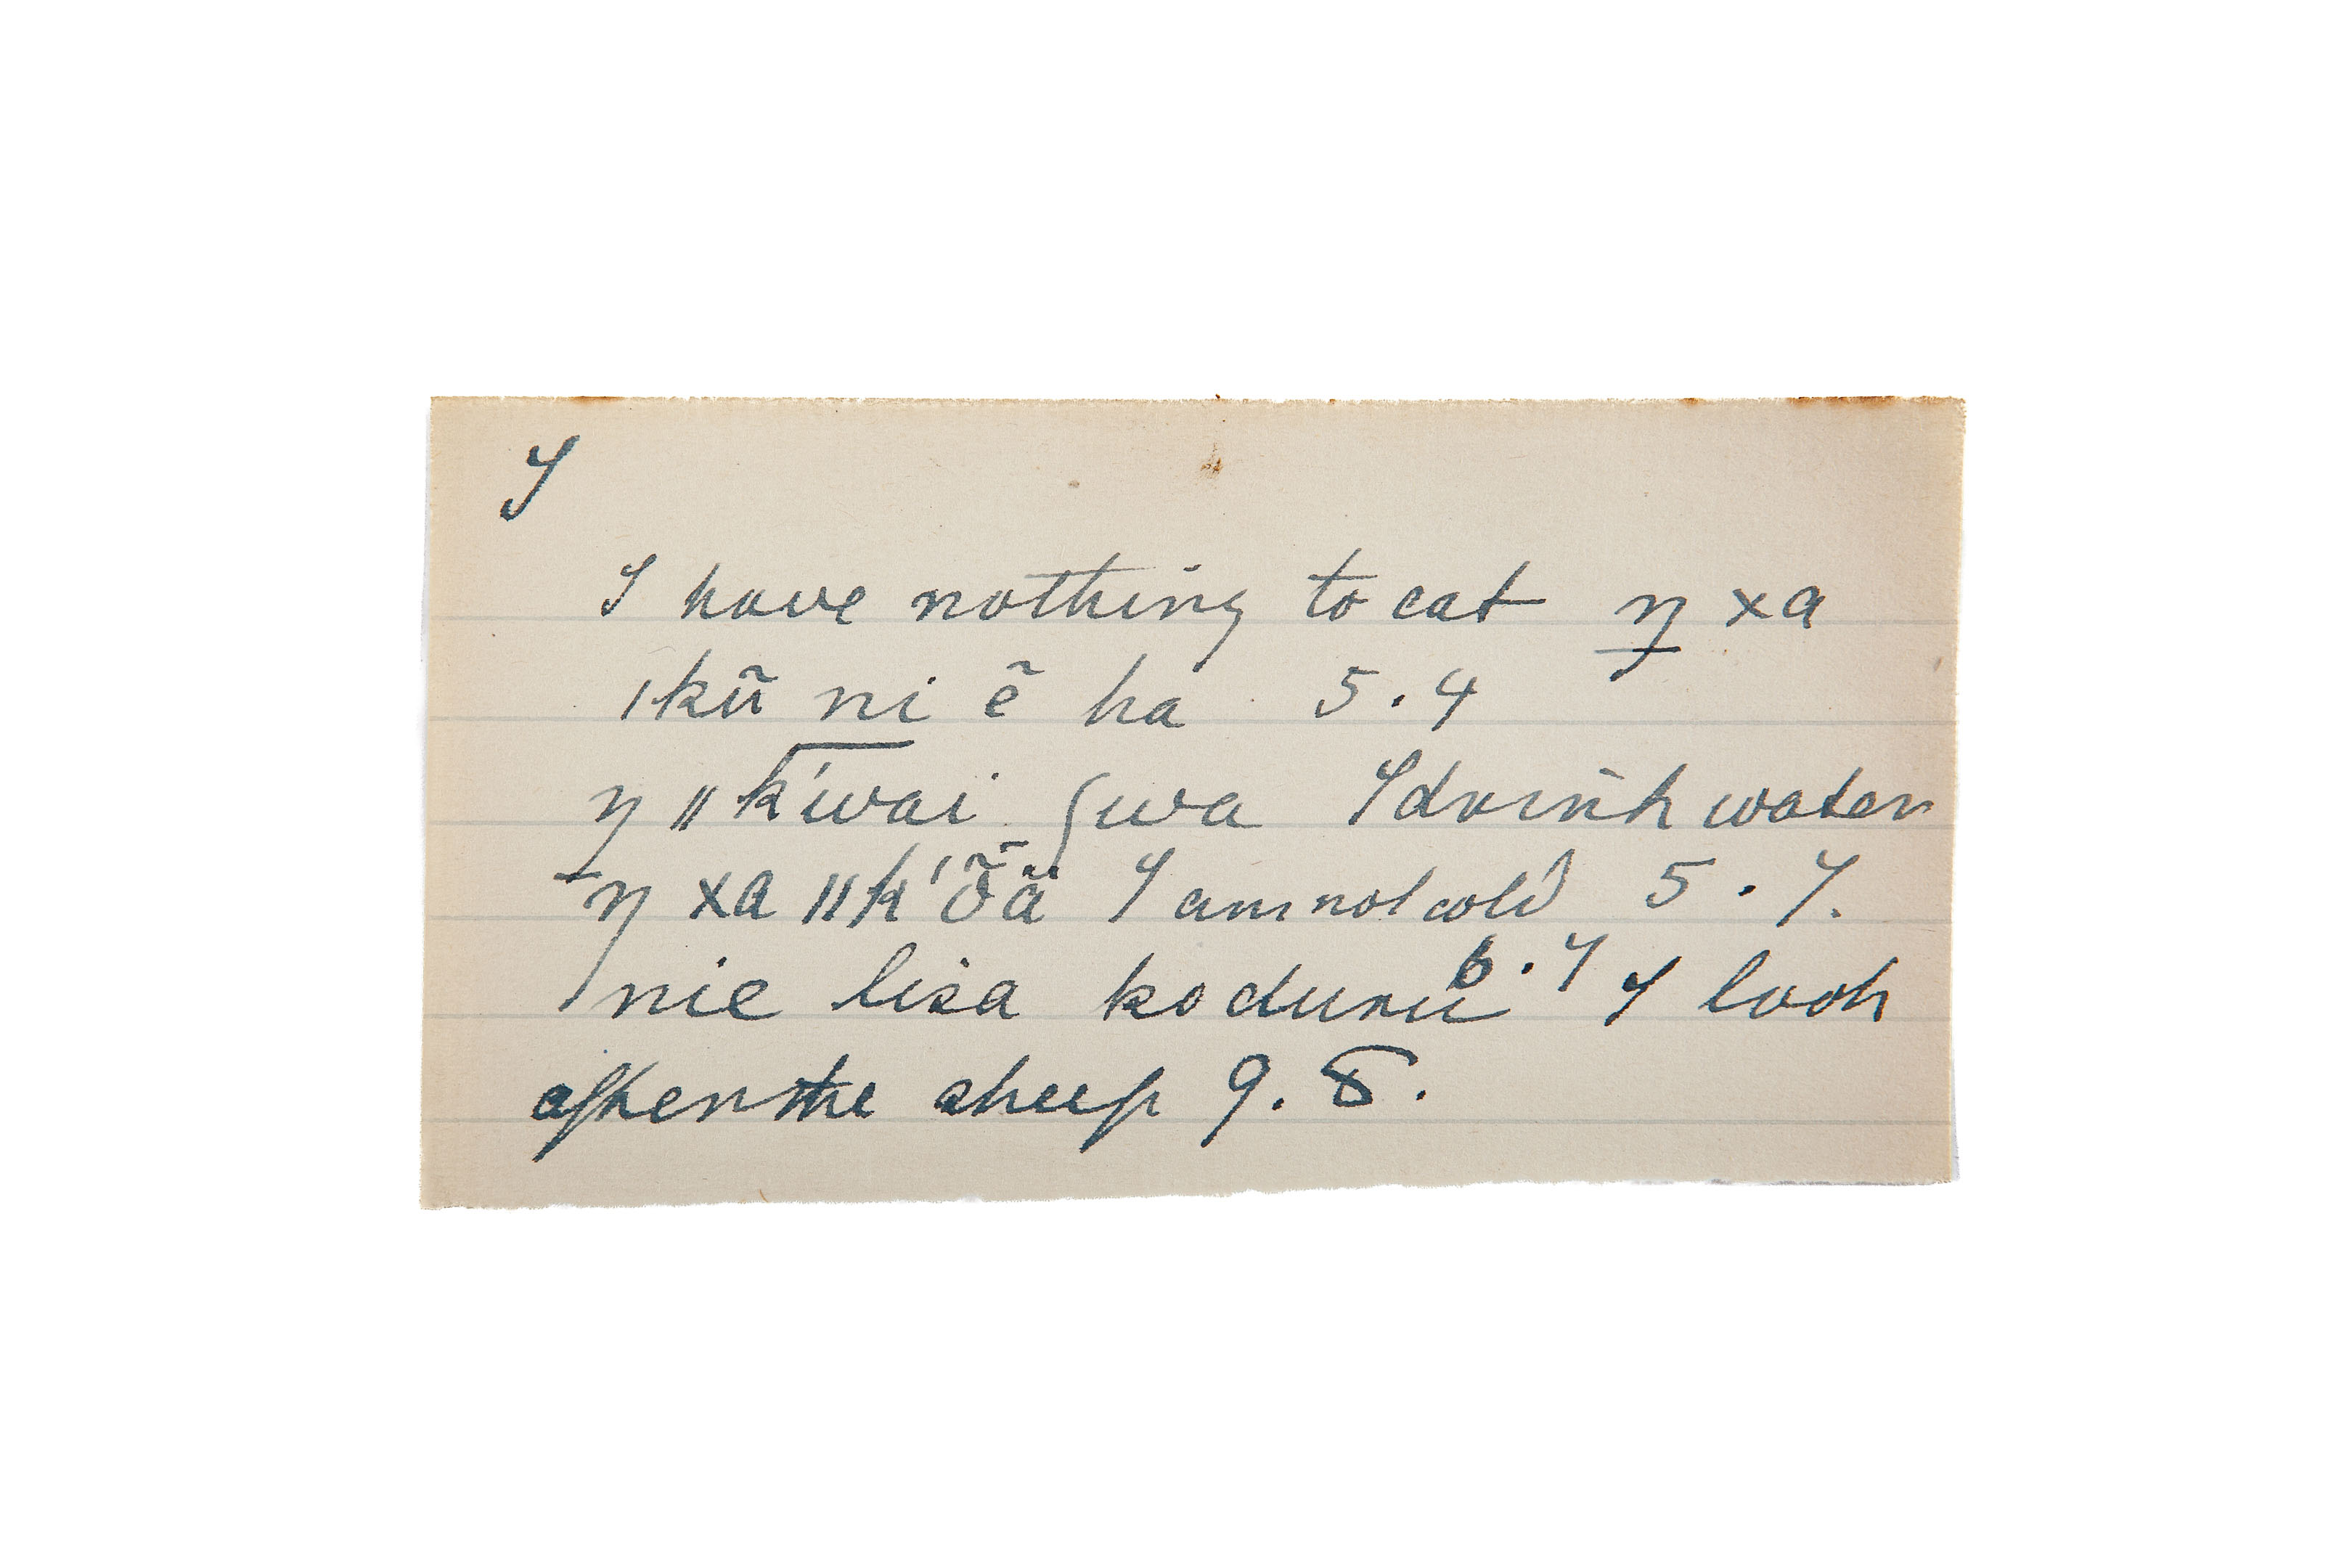 I
I have nothing to eat ŋ xa
ǀkũ ni ẽ ha 5.4
ŋ ǁk'wai ʃwa I drink water
ŋ xa ǁk'õä I am not cold 5.7.
nie lisa koduru 6.7 I look
after the sheep 9.8.